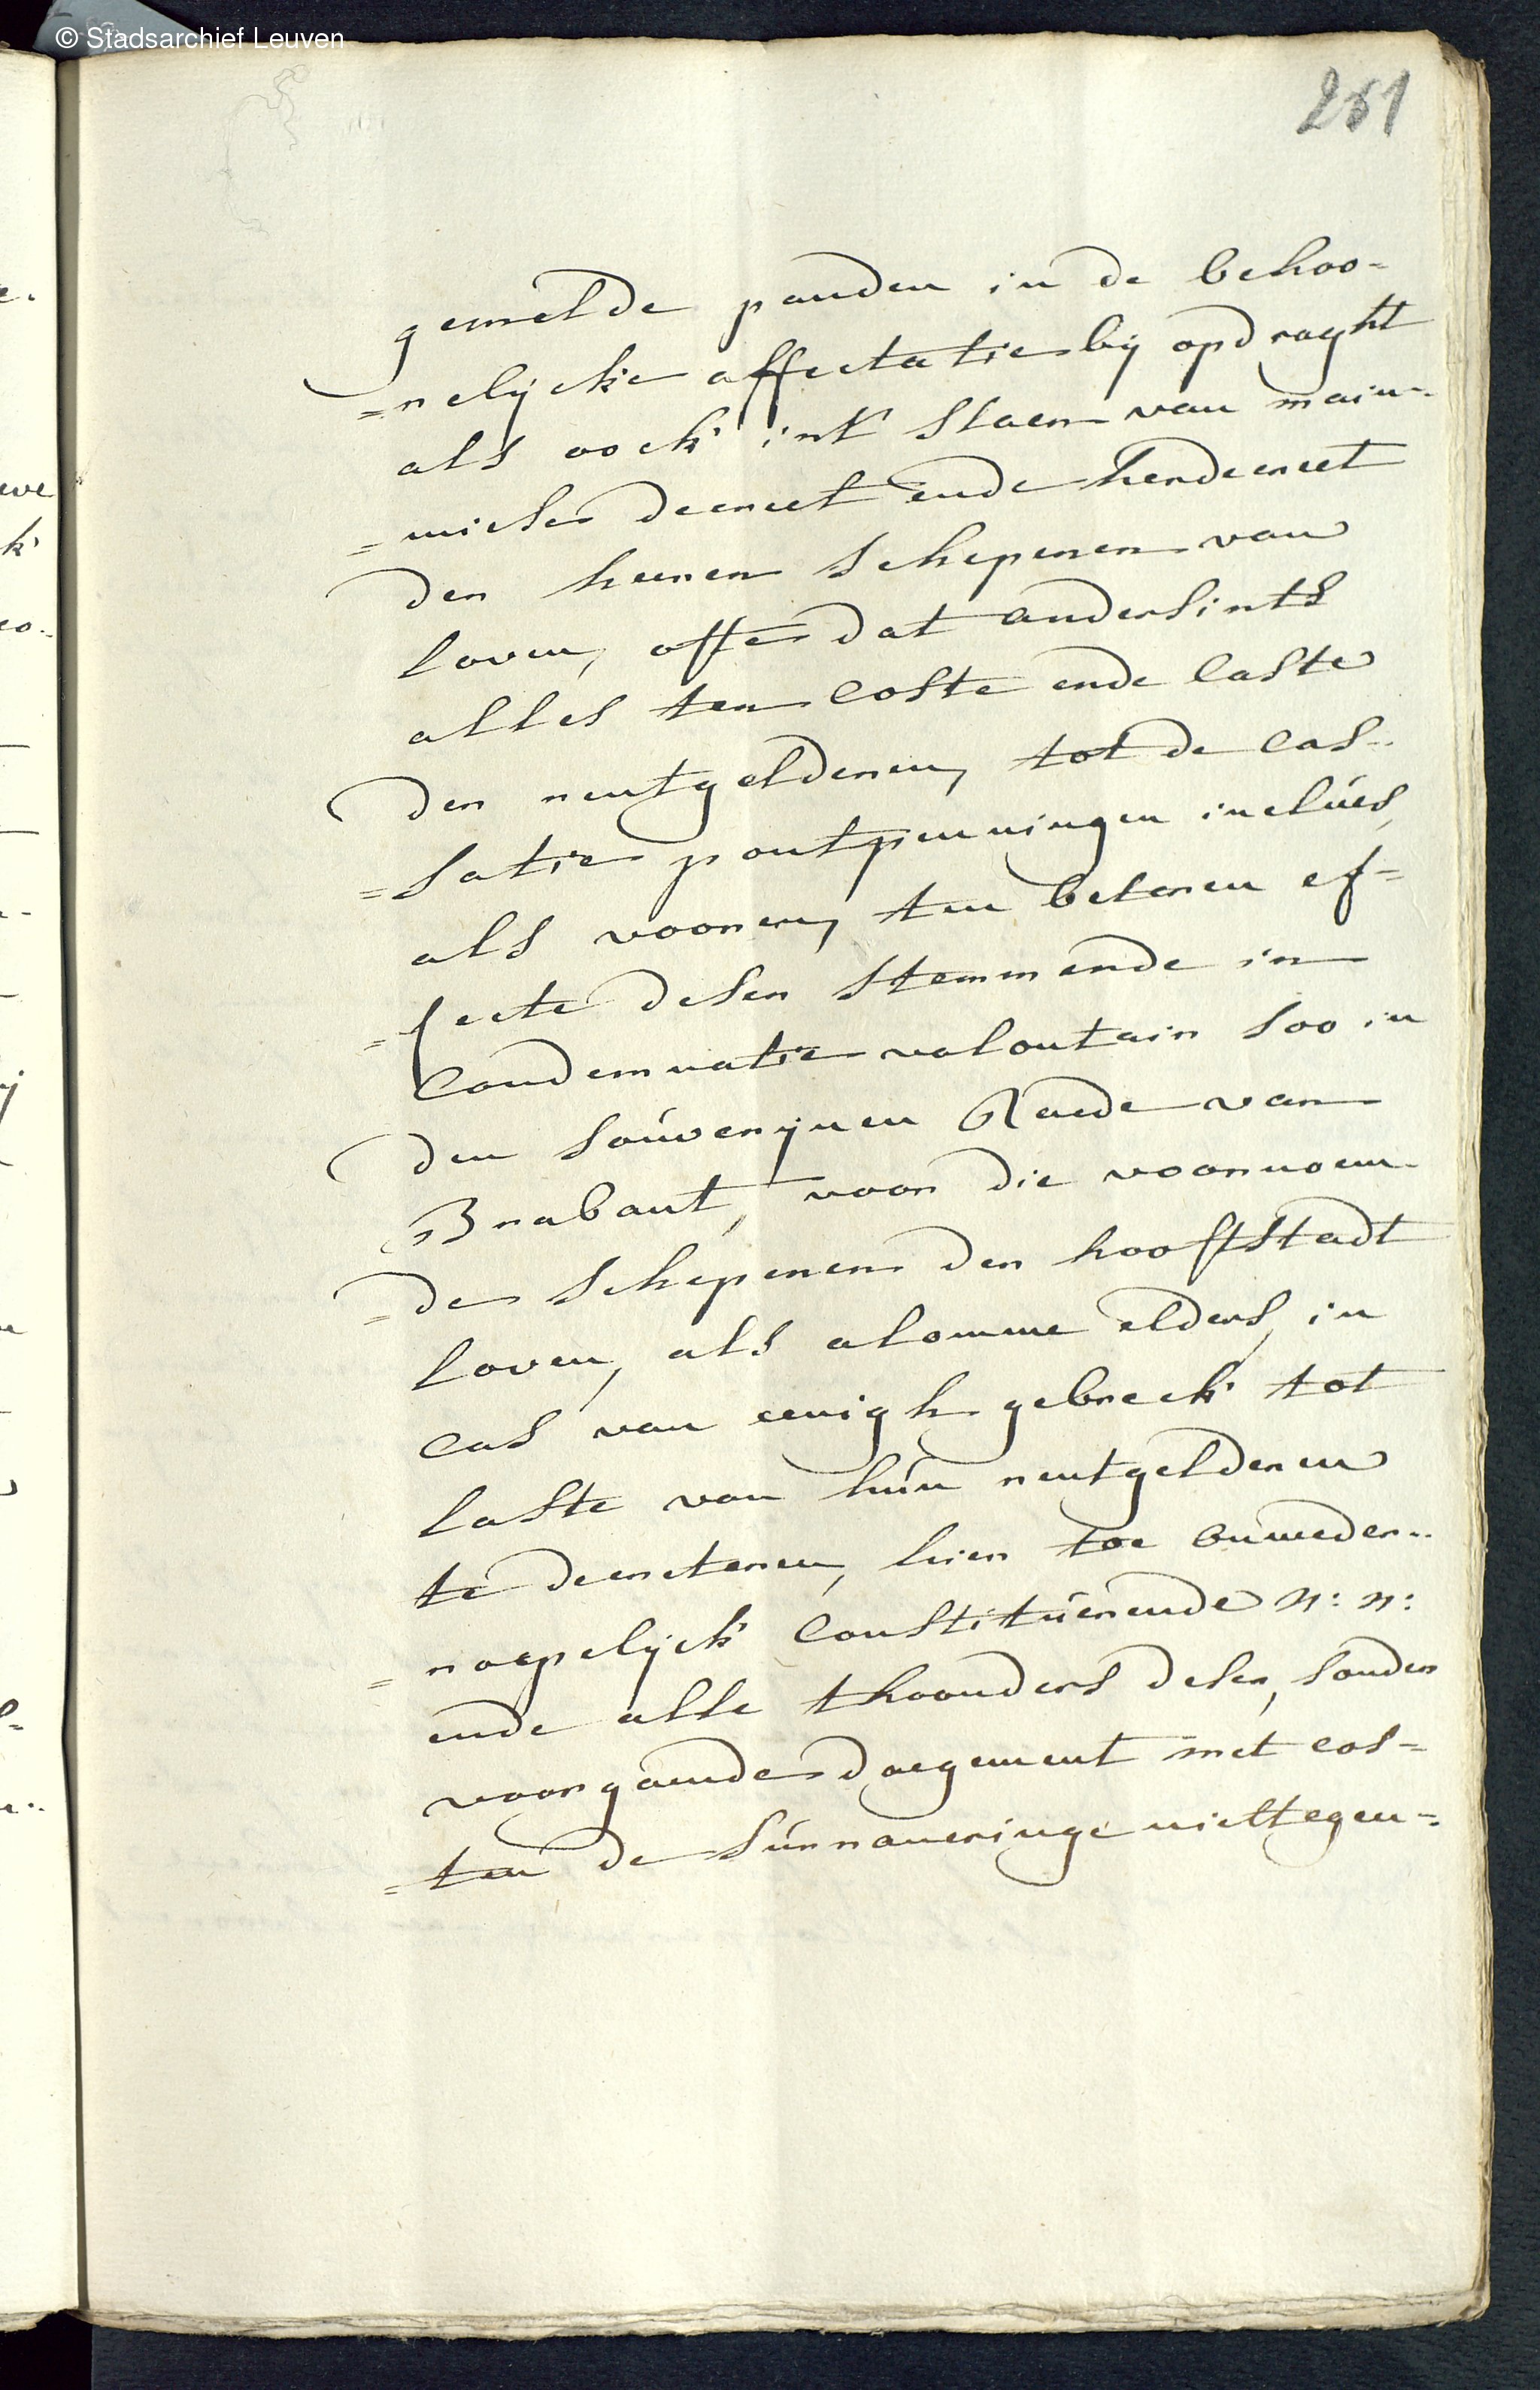 © Stadsarchief Leuven
261
gemelde panden in de behoo-
=relijcke affectatie bij opdraght
als oock int slaen van main-
=mise decreet ende herdecreet
der heeren schepenen van
loven, offe dat andersints
alles ten coste ende laste
der rentgelderen, tot de cas-
=satie pontpenningen inclúés,
als vooren, ten beteren ef-
=fecte deser stemmende in
Condemnatie volontair soo in
den soúverijnen Raede van
Brabant, voor die voornoem-
=de schepenen der hooftstadt
loven, als alomme elders, in
cas van eenigh gebreck tot
laste van hún rentgelderen
te decreteren, hier toe onweder-
=roepelijck Constitúerende n: n:
ende alle thoonders deser, sonder
voorgaende daegement met cos-
=ten de súrrogeringe niettegen-